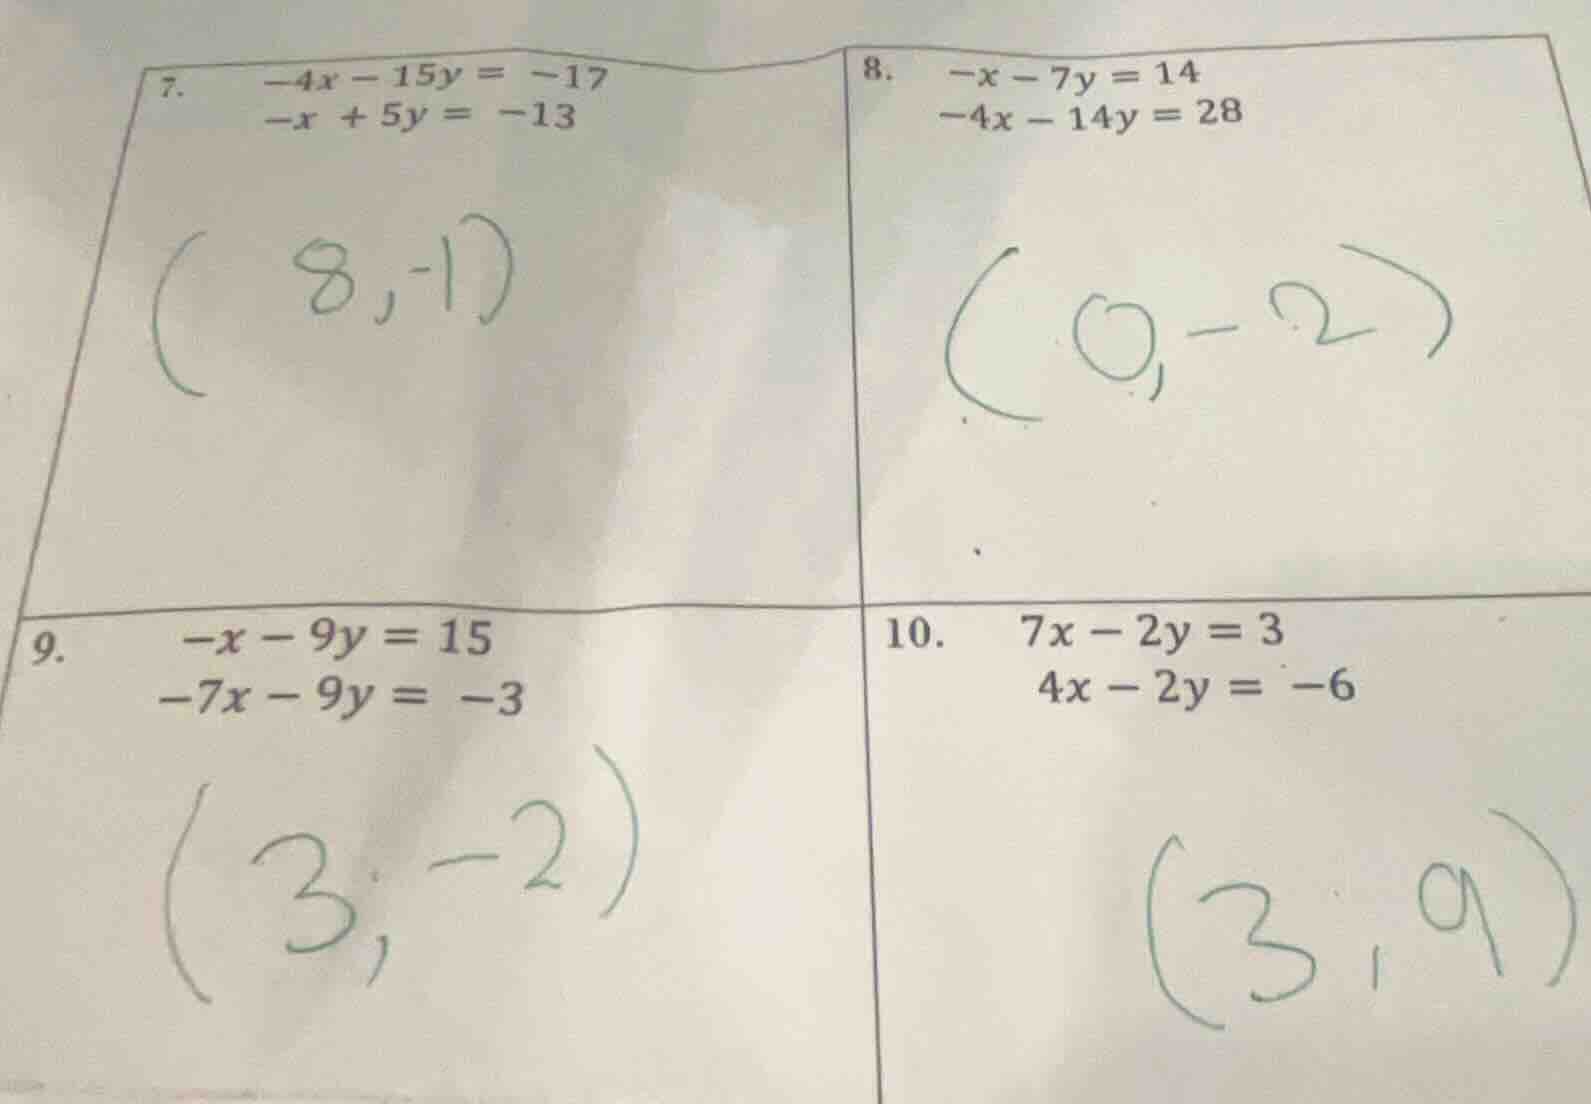 7. −4x − 15y = −17
−x + 5y = −13
(8,-1)
8. −x − 7y = 14
−4x − 14y = 28
(0,-2)
9. −x − 9y = 15
−7x − 9y = −3
(3,-2)
10. 7x − 2y = 3
4x − 2y = −6
(3,9)